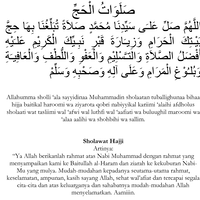 صَلَوَاتُ الْحَجِّ
اَللّٰهُمَّ صَلِّ عَلٰى سَيِّدِنَا مُحَمَّدٍ صَلَاةً تُبَلِّغُنَا بِهَا حِجَّ
بَيْتِكَ الْحَرَامِ وَزِيَارَةَ قَبْرِ نَبِيِّكَ الْكَرِيْمِ عَلَيْهِ
أَفْضَلُ الصَّلَاةِ وَالتَّسْلِيْمِ وَالْعَفْوِ وَاللُّطْفِ وَالْعَافِيَةِ
وَبُلُوْغِ الْمَرَامِ وَعَلَى آلِهِ وَصَحْبِهِ وَسَلِّمْ
Allahumma sholli 'ala sayyidinaa Muhammadin sholaatan tuballighunaa bihaa
hijja baitikal haroomi wa ziyarota qobri nabiyyikal kariimi 'alaihi afdholus
sholaati wat tasliimi wal 'afwi wal luthfi wal 'aafiati wa buluughil maroomi wa
'alaa aalihi wa shohbihi wa sallim.
Sholawat Hajji
Artinya:
"Ya Allah berikanlah rahmat atas Nabi Muhammad dengan rahmat yang
menyampaikan kami ke Baitullah al Haram dan ziarah ke kekuburan Nabi-
Mu yang mulya. Mudah-mudahan kepadanya seutama-utama rahmat,
keselamatan, ampunan, kasih sayang Allah, sehat wal'afiat dan tercapai segala
cita-cita dan atas keluarganya dan sahabatnya mudah-mudahan Allah
menyelamatkan. Aamiiin.